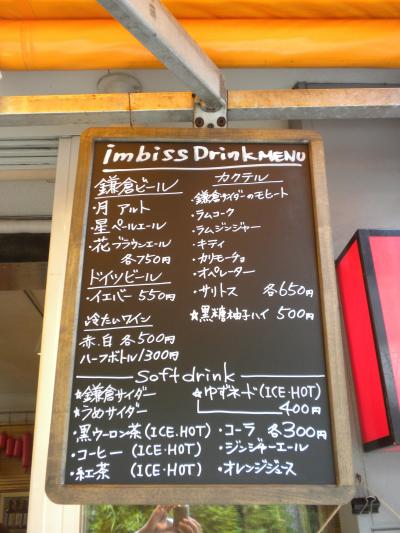 imbiss Drink MENU
鎌倉ビール
・月 アルト
・星 ペールエール
・花 ブラウンエール
各750円
ドイツビール
・イエバー 550円
冷たいワイン
赤、白 各500円
ハーフボトル1300円
カクテル
・鎌倉サイダーのモヒート
・ラムコーク
・ラムジンジャー
・キティ
・カリモーチョ
・オペレーター
・サリトス 各650円
☆黒糖柚子ハイ 500円
Soft drink
☆鎌倉サイダー
☆うめサイダー
・黒ウーロン茶(ICE・HOT)
・コーヒー (ICE・HOT)
・紅茶 (ICE・HOT)
☆ゆずネード(ICE・HOT)
400円
・コーラ 各300円
・ジンジャーエール
・オレンジジュース